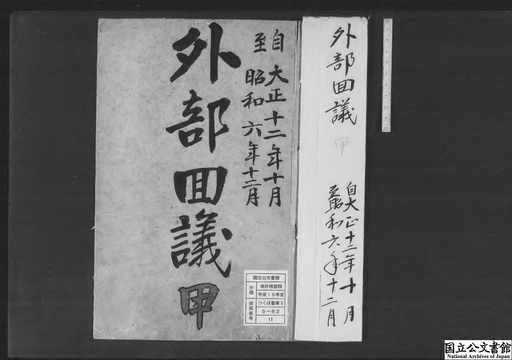 自 大正十二年十月
至 昭和六年十二月
外部回議 甲
国立公文書館
分類
会計検査院
平成15年度
つくば書庫3
5-52
11
排架番号
外部回議 甲
自大正十二年十月
至昭和六年十二月
国立公文書館
National Archives of Japan